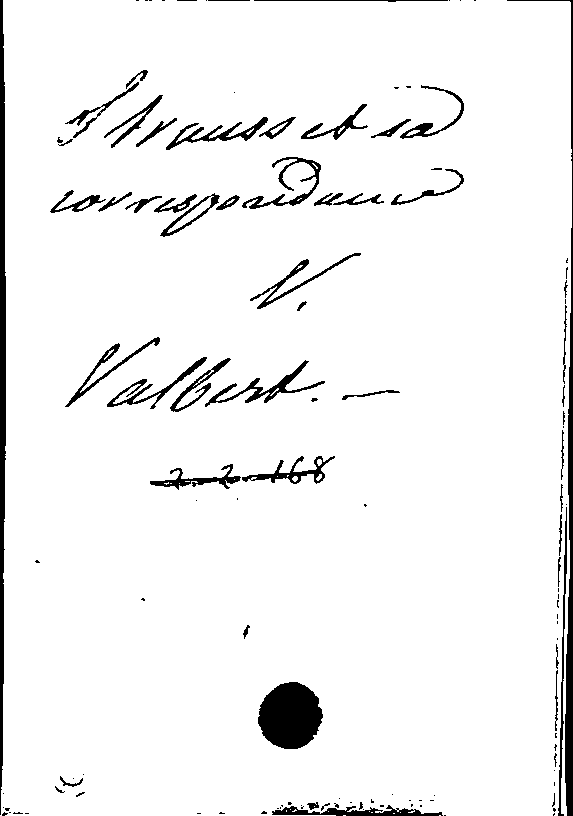 Strauss et sa
correspondance
V.
Valbert. —
2. 2. 168